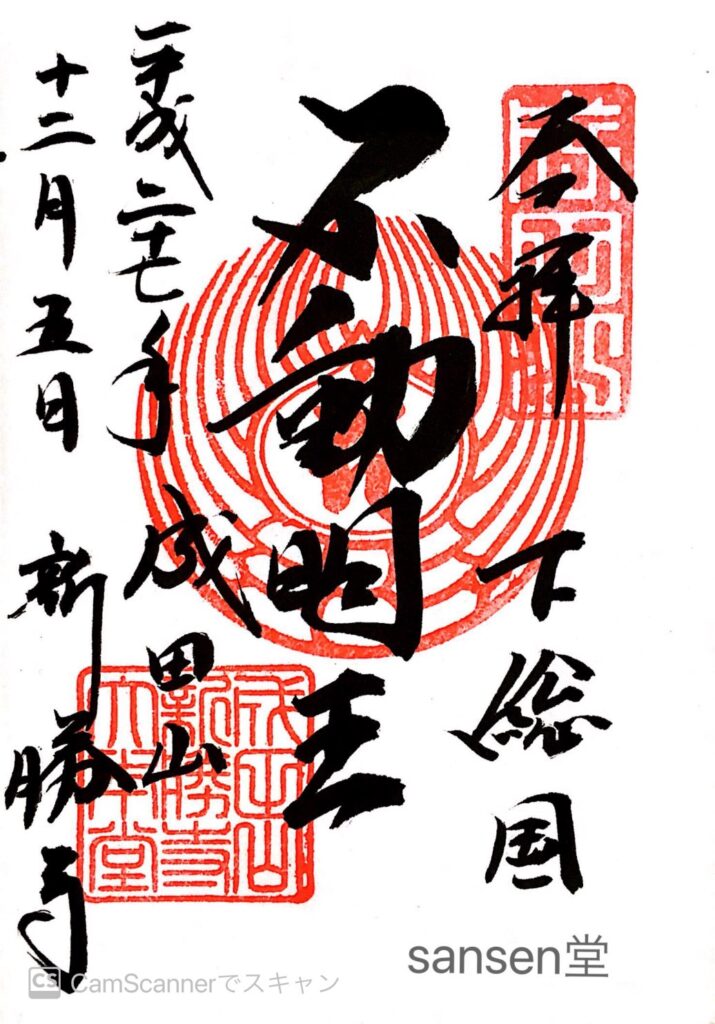 奉拝 下総国
不動明王
平成二十七年 成田山
十二月五日 新勝寺
成田山
新勝寺
大本堂
sansen堂
CS CamScannerでスキャン